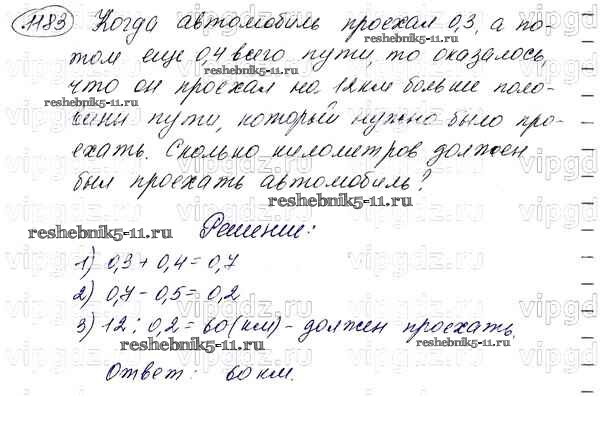 1183 Когда автомобиль проехал 0,3, а по-
том еще 0,4 всего пути, то оказалось,
что он проехал на 12 км больше поло-
вины пути, который нужно было про-
ехать. Сколько километров должен
был проехать автомобиль?
Решение:
1) 0,3 + 0,4 = 0,7
2) 0,7 - 0,5 = 0,2
3) 12 : 0,2 = 60 (км) - должен проехать.
Ответ: 60 км.
reshebnik5-11.ru
reshebnik5-11.ru
reshebnik5-11.ru
reshebnik5-11.ru
reshebnik5-11.ru
reshebnik5-11.ru
reshebnik5-11.ru
vipgdz.ru